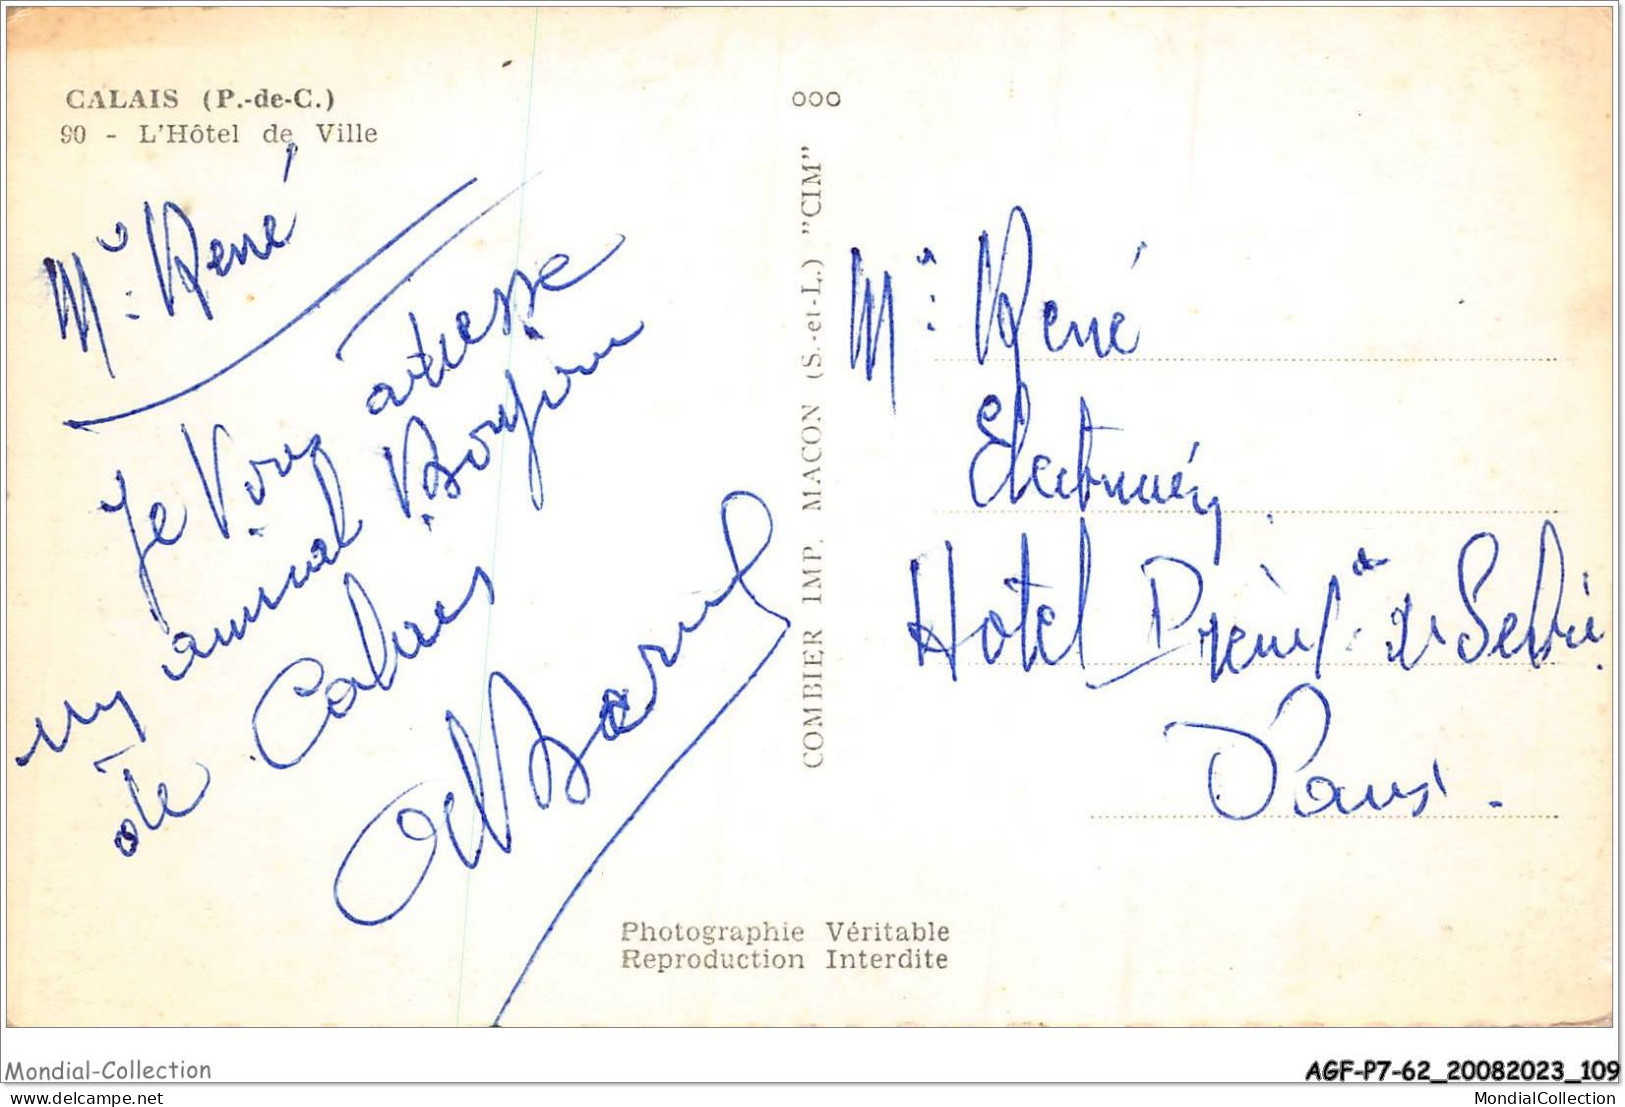 CALAIS (P.-de-C.)
90 - L'Hôtel de Ville
Mr. René
Je Vous adresse
un amical Bonjour
de Calais
COMBIER IMP. MACON (S.-et-L.) "CIM"
Photographie Véritable
Reproduction Interdite
Mr. René
Hotel
Paris.
Mondial-Collection
AGF-P7-62_20082023_109
delcampe.net
MondialCollection